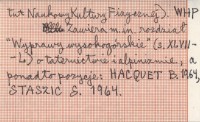 tut Naukowy Kultury Fizycznej). WHP
Zawiera m.in. rozdział
"Wyprawy wysokogórskie" (s. XLVII-
-L) o taternictwie i alpinizmie, a
ponadto pozycje: HACQUET B. 1964,
STASZIC S. 1964.